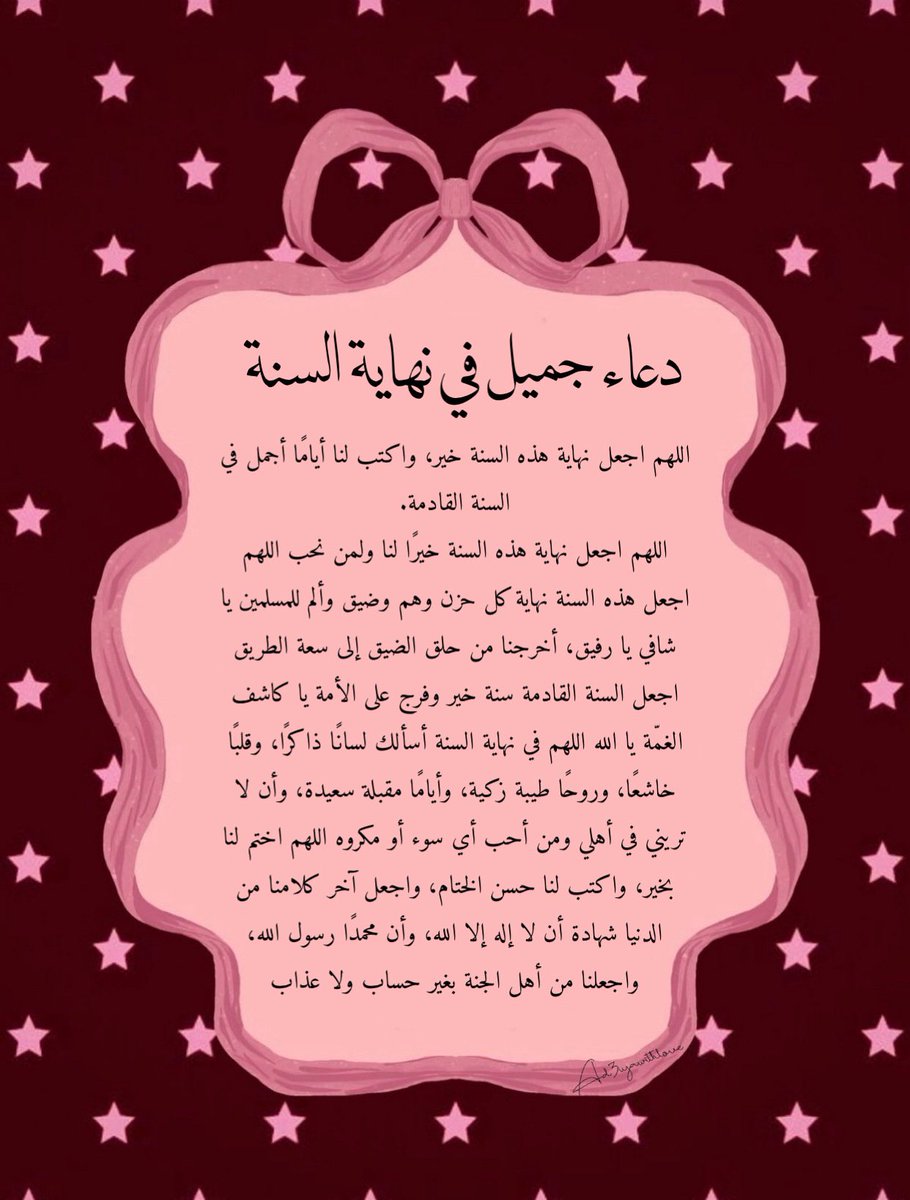 دعاء جميل في نهاية السنة
اللهم اجعل نهاية هذه السنة خير، واكتب لنا أيامًا أجمل في
السنة القادمة.
اللهم اجعل نهاية هذه السنة خيرًا لنا ولمن نحب اللهم
اجعل هذه السنة نهاية كل حزن وهم وضيق وألم للمسلمين يا
شافي يا رفيق، أخرجنا من حلق الضيق إلى سعة الطريق
اجعل السنة القادمة سنة خير وفرج على الأمة يا كاشف
الغمّة يا الله اللهم في نهاية السنة أسألك لسانًا ذاكرًا، وقلبًا
خاشعًا، وروحًا طيبة زكية، وأيامًا مقبلة سعيدة، وأن لا
تريني في أهلي ومن أحب أي سوء أو مكروه اللهم اختم لنا
بخير، واكتب لنا حسن الختام، واجعل آخر كلامنا من
الدنيا شهادة أن لا إله إلا الله، وأن محمدًا رسول الله،
واجعلنا من أهل الجنة بغير حساب ولا عذاب
Ad3iyawithlove